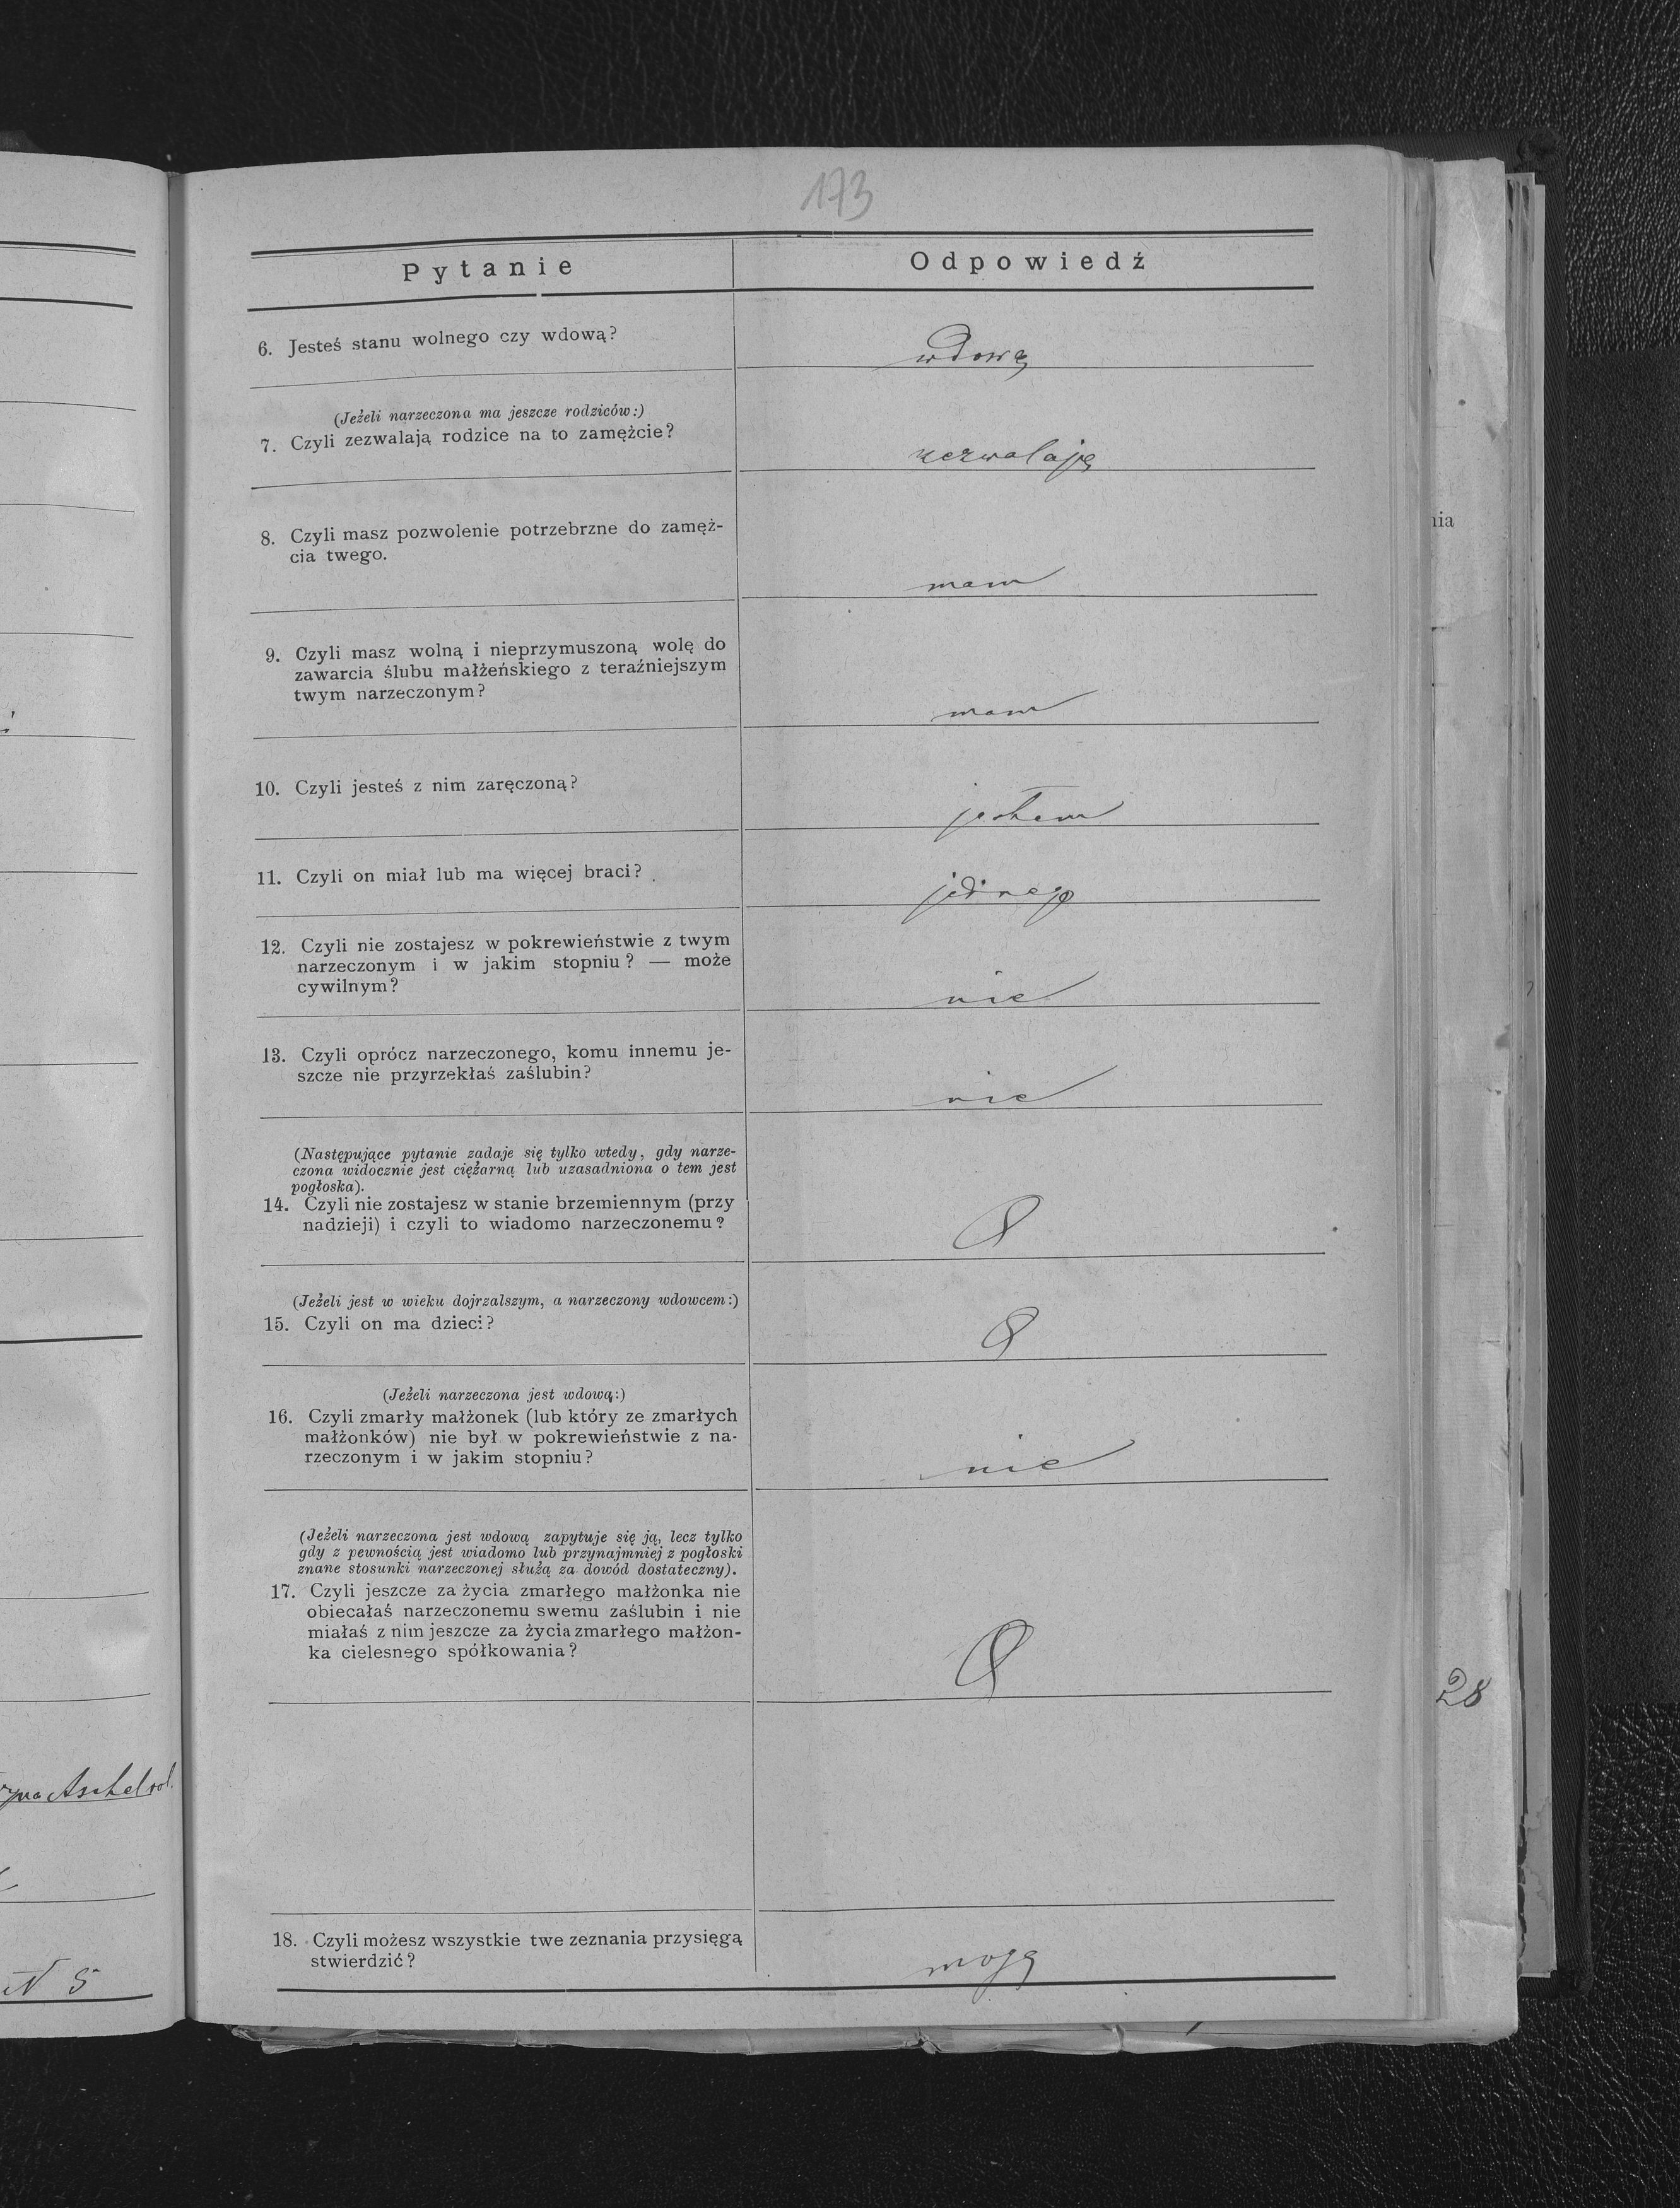 173
Pytanie
Odpowiedź
6. Jesteś stanu wolnego czy wdową?
wdową
(Jeżeli narzeczona ma jeszcze rodziców:)
7. Czyli zezwalają rodzice na to zamężcie?
zezwalają
8. Czyli masz pozwolenie potrzebrzne do zamęż-
cia twego.
mam
9. Czyli masz wolną i nieprzymuszoną wolę do
zawarcia ślubu małżeńskiego z teraźniejszym
twym narzeczonym?
mam
10. Czyli jesteś z nim zaręczoną?
jestem
11. Czyli on miał lub ma więcej braci?
jednego
12. Czyli nie zostajesz w pokrewieństwie z twym
narzeczonym i w jakim stopniu? — może
cywilnym?
nie
13. Czyli oprócz narzeczonego, komu innemu je-
szcze nie przyrzekłaś zaślubin?
nie
(Następujące pytanie zadaje się tylko wtedy, gdy narze-
czona widocznie jest ciężarną lub uzasadniona o tem jest
pogłoska).
14. Czyli nie zostajesz w stanie brzemiennym (przy
nadzieji) i czyli to wiadomo narzeczonemu?
(Jeżeli jest w wieku dojrzalszym, a narzeczony wdowcem:)
15. Czyli on ma dzieci?
(Jeżeli narzeczona jest wdową:)
16. Czyli zmarły małżonek (lub który ze zmarłych
małżonków) nie był w pokrewieństwie z na-
rzeczonym i w jakim stopniu?
nie
(Jeżeli narzeczona jest wdową zapytuje się ją, lecz tylko
gdy z pewnością jest wiadomo lub przynajmniej z pogłoski
znane stosunki narzeczonej służą za dowód dostateczny).
17. Czyli jeszcze za życia zmarłego małżonka nie
obiecałaś narzeczonemu swemu zaślubin i nie
miałaś z nim jeszcze za życia zmarłego małżon-
ka cielesnego spółkowania?
18. Czyli możesz wszystkie twe zeznania przysięgą
stwierdzić?
mogę
N 5
nia
28